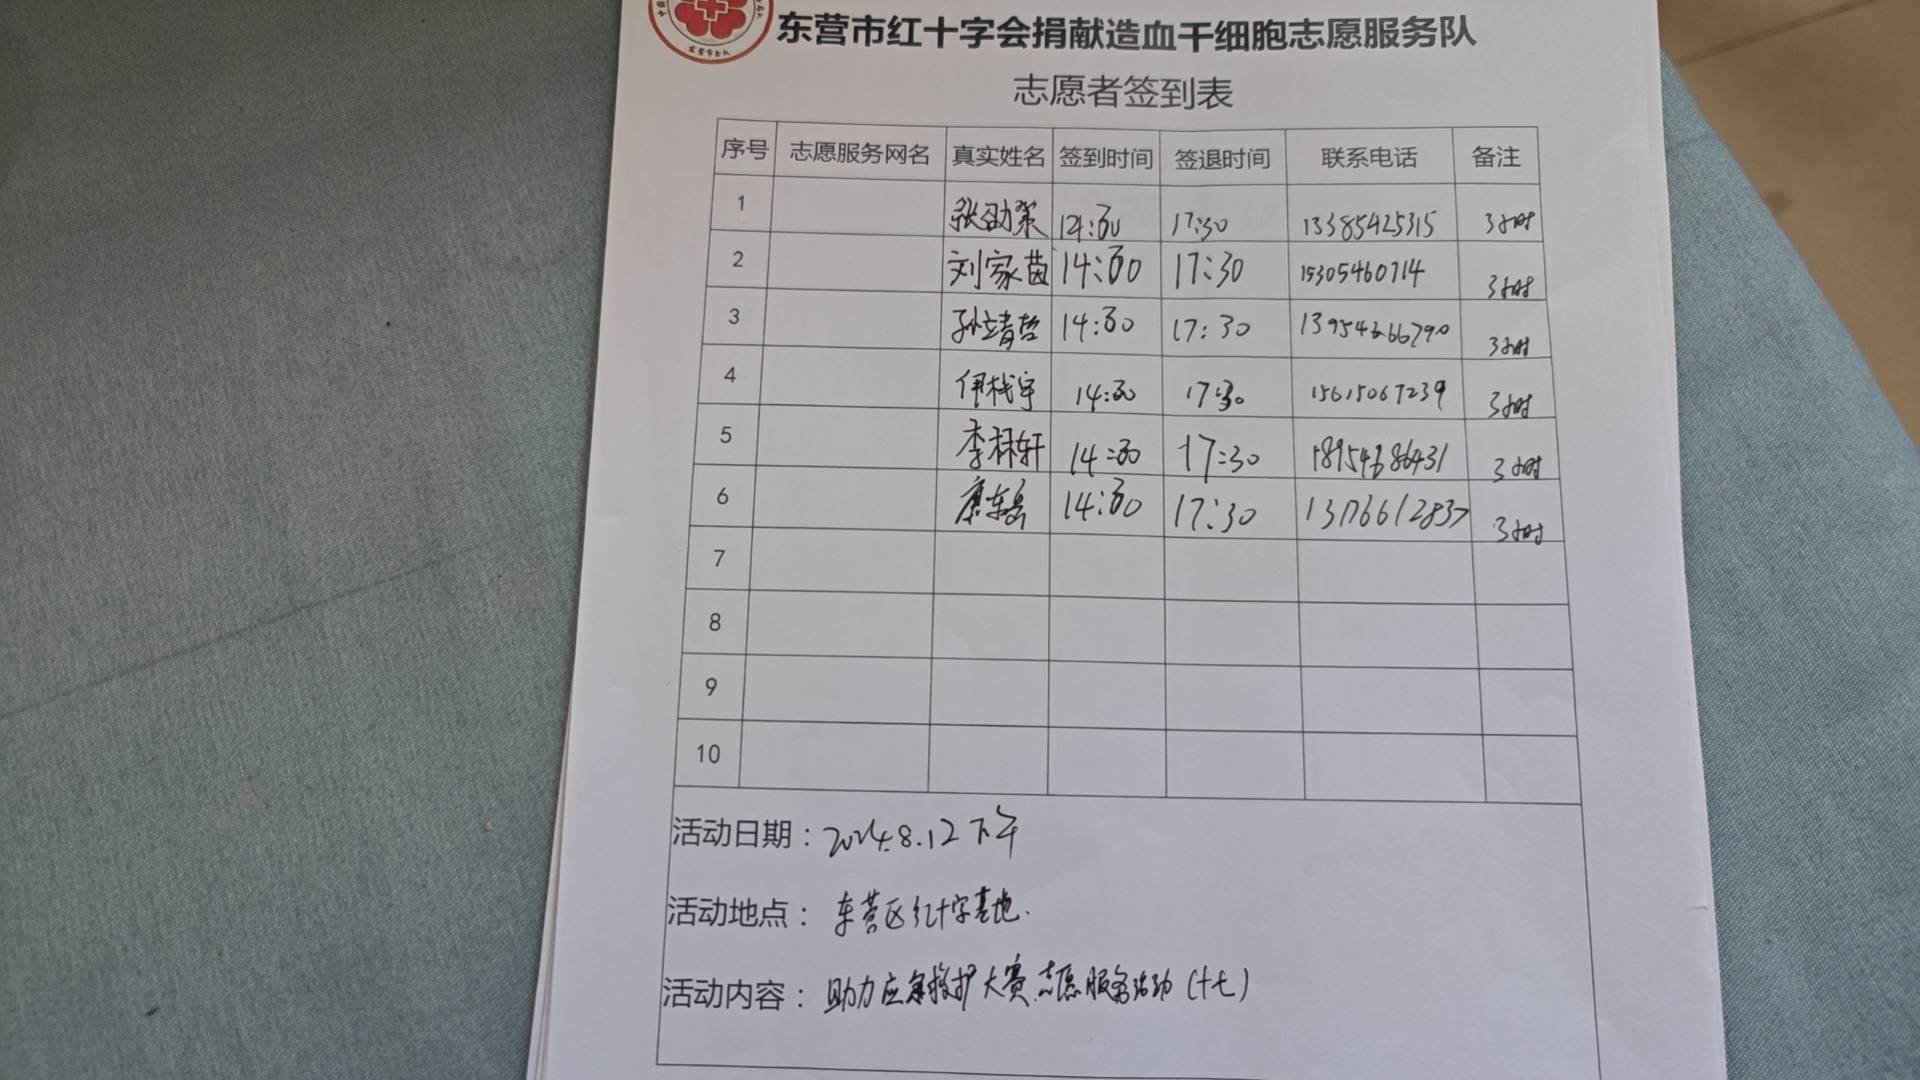 东营市红十字会捐献造血干细胞志愿服务队
志愿者签到表
序号 志愿服务网名 真实姓名 签到时间 签退时间 联系电话 备注
1 张劭策 14:30 17:30 13385425315 3小时
2 刘家茵 14:30 17:30 15305460714 3小时
3 孙靖哲 14:30 17:30 13954666790 3小时
4 14:30 17:30 15615067239 3小时
5 李林轩 14:30 17:30 18954686431 3小时
6 康东岳 14:30 17:30 3小时
7
8
9
10
活动日期：2024.8.12下午
活动地点：东营区红十字基地.
活动内容：助力应急救护大赛志愿服务活动(十七)